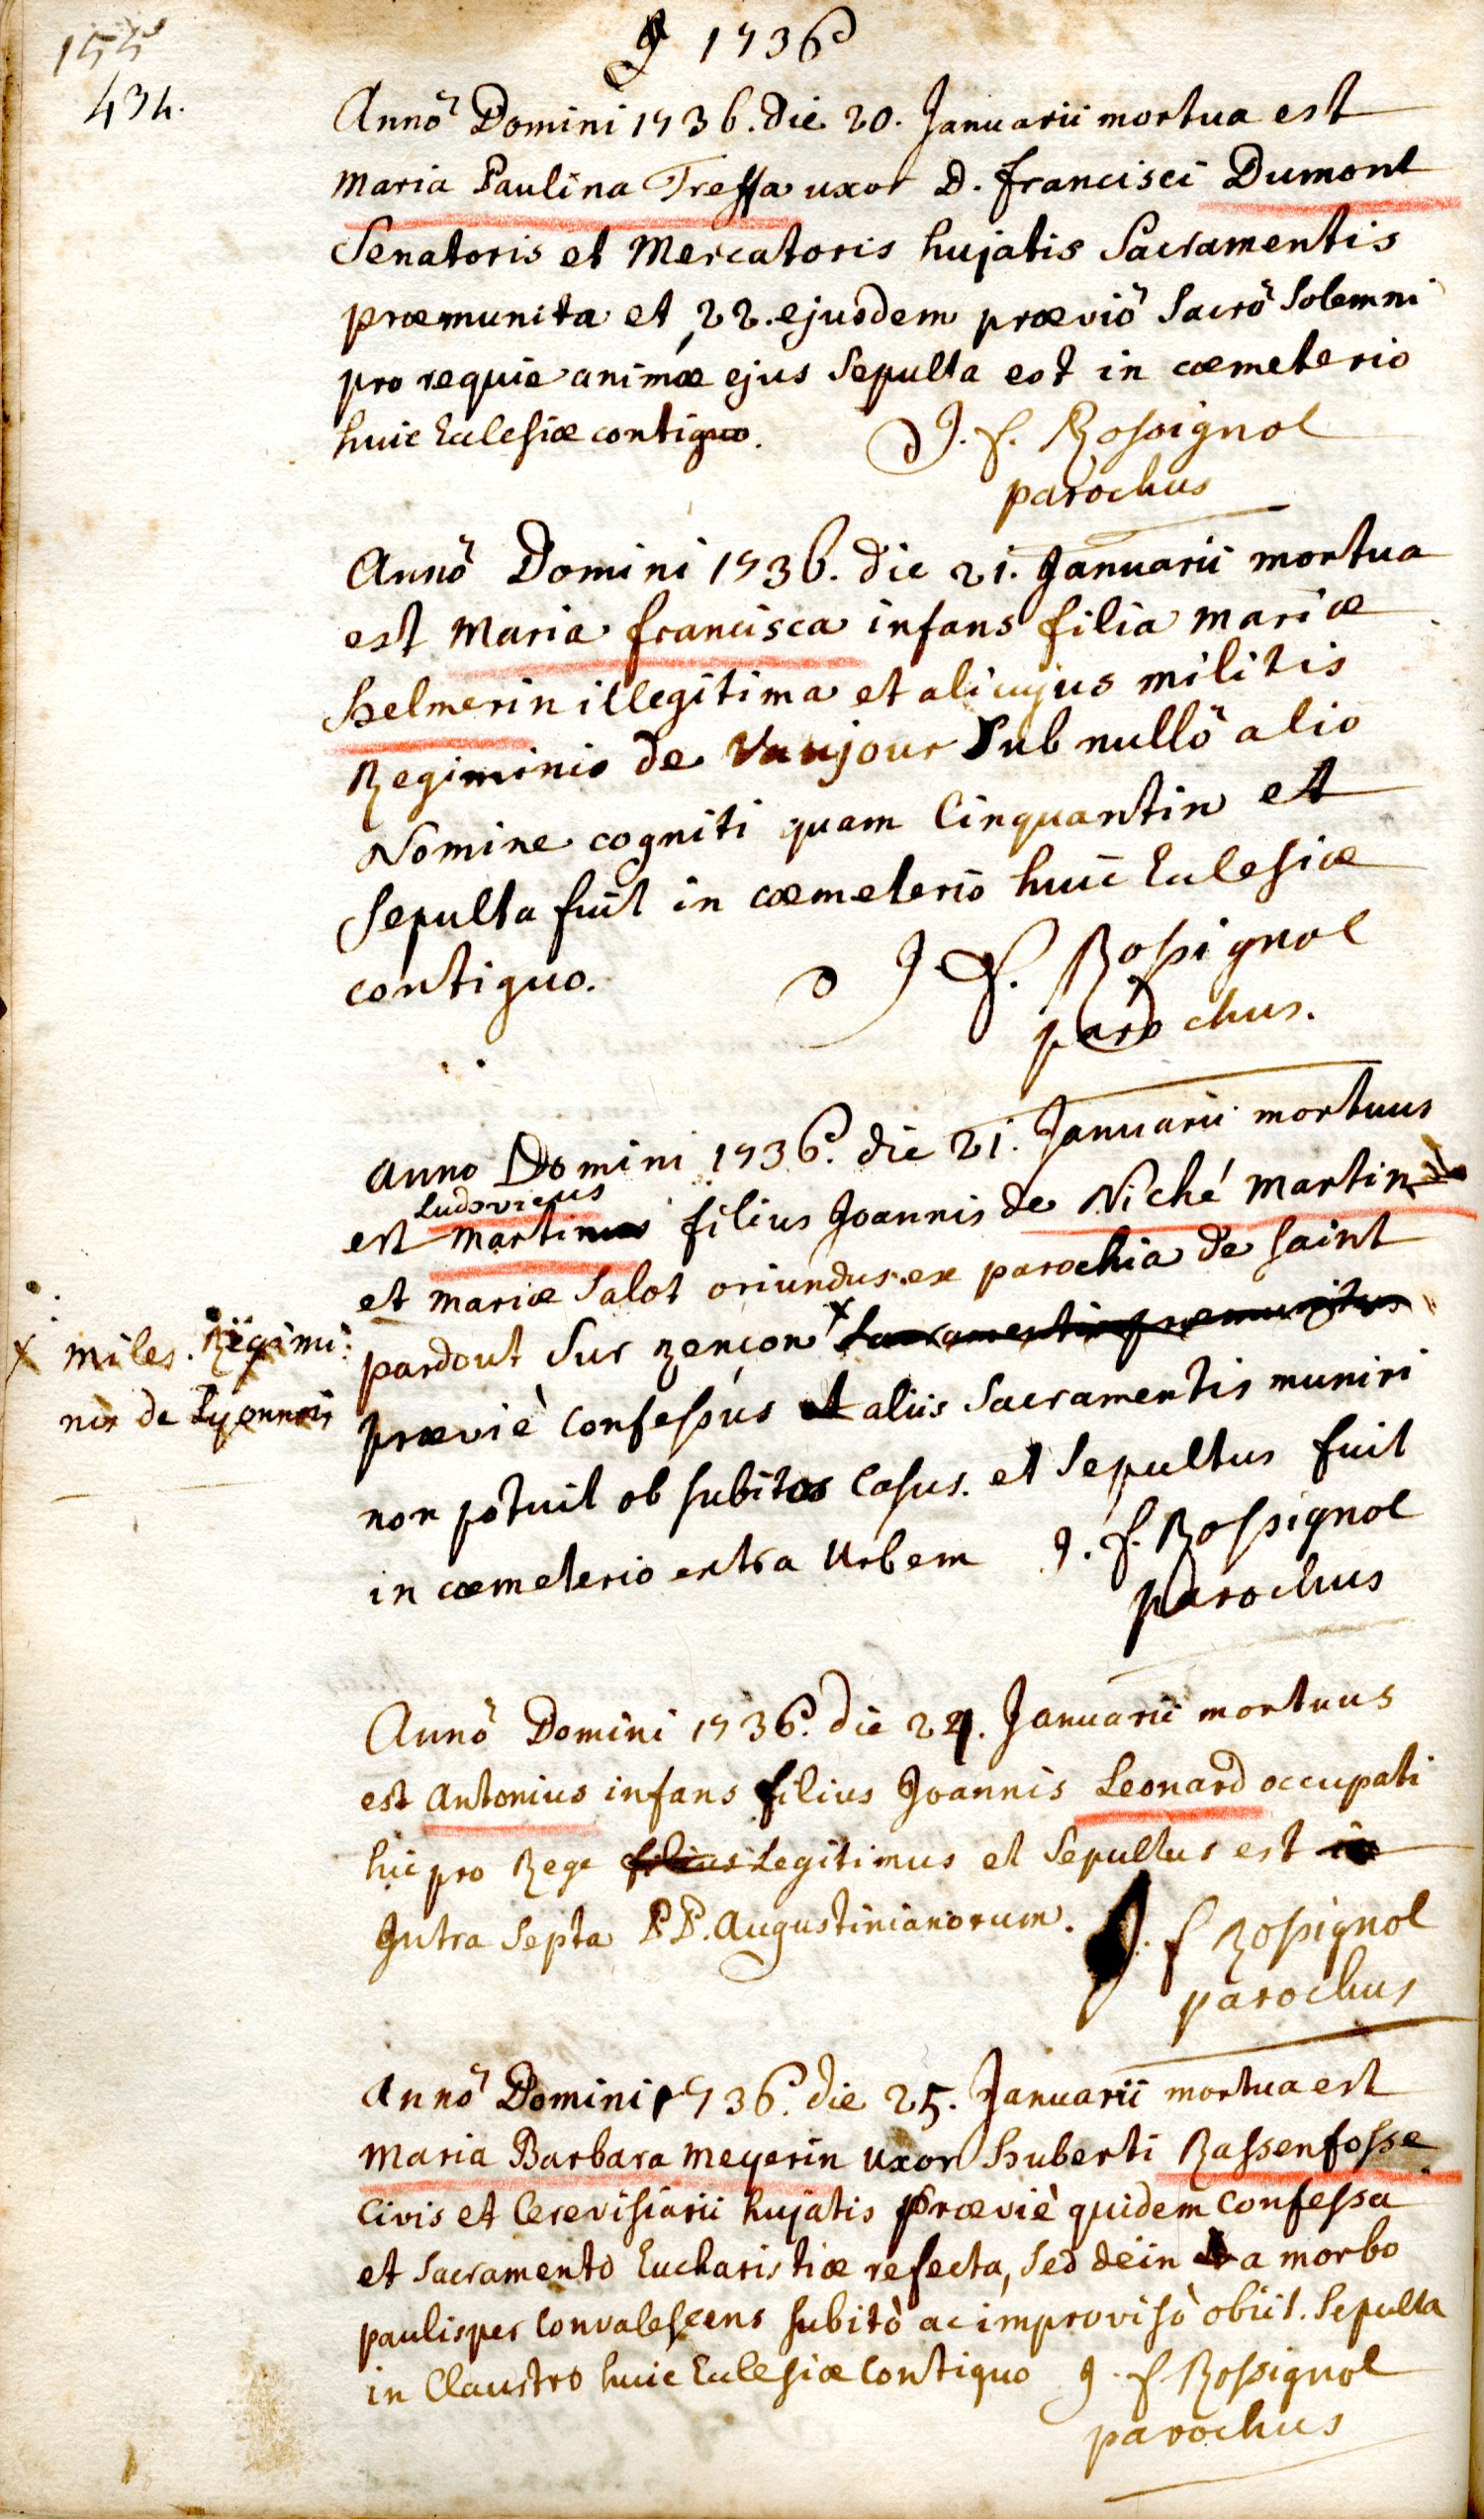 155
434.
1736
Annô Domini 1736. die 20. Januarii mortua est
Maria Paulina Tressa uxor D. francisci Dumont
Senatoris et Mercatoris hujatis Sacramentis
præmunita et 22. ejusdem præviô Sacrô Solemni
pro requie animæ ejus Sepulta est in cœmeterio
huic Ecclesiæ contiguo. J. f. Rossignol
parochus
Annô Domini 1736. die 21. Januarii mortua
est Maria francisca infans filia mariæ
helmerin illegitima et alicujus militis
Regiminis de Vaujour Sub nullô alio
Nomine cogniti quam Cinquantin et
Sepulta fuit in cœmeterio huic Ecclesiæ
contiguo. J. f. Rossignol
parochus.
anno Domini 1736. die 21. Januarii mortuus
Ludovicus
est Martinus filius Joannis de Niché Martin
et mariæ Salot oriundus ex parochia de Saint
pardout Sur rençon x Sacramentis præmunitus
x miles. Regimi:
nis de Lyonnois
præviè Confessus et aliis Sacramentis muniri
non potuit ob subitos Casus. et Sepultus fuit
in cœmeterio extra Urbem J. f. Rossignol
parochus
Annô Domini 1736. die 24. Januarii mortuus
est Antonius infans filius Joannis Leonard occupati
hic pro Rege filius Legitimus et Sepultus est in
Intra Septa P.P. Augustinianorum. J. f Rossignol
parochus
Annô Domini 1736. die 25. Januarii mortua est
Maria Barbara Meyerin Uxor huberti Rassenfosse
Civis et Cerevisiarii hujatis Præviè quidem Confessa
et Sacramento Eucharistiæ refecta, Sed dein a morbo
paulisper Convalescens subitò ac improvisò obiit. Sepulta
in Claustro huic Ecclesiæ Contiguo J. f Rossignol
parochus